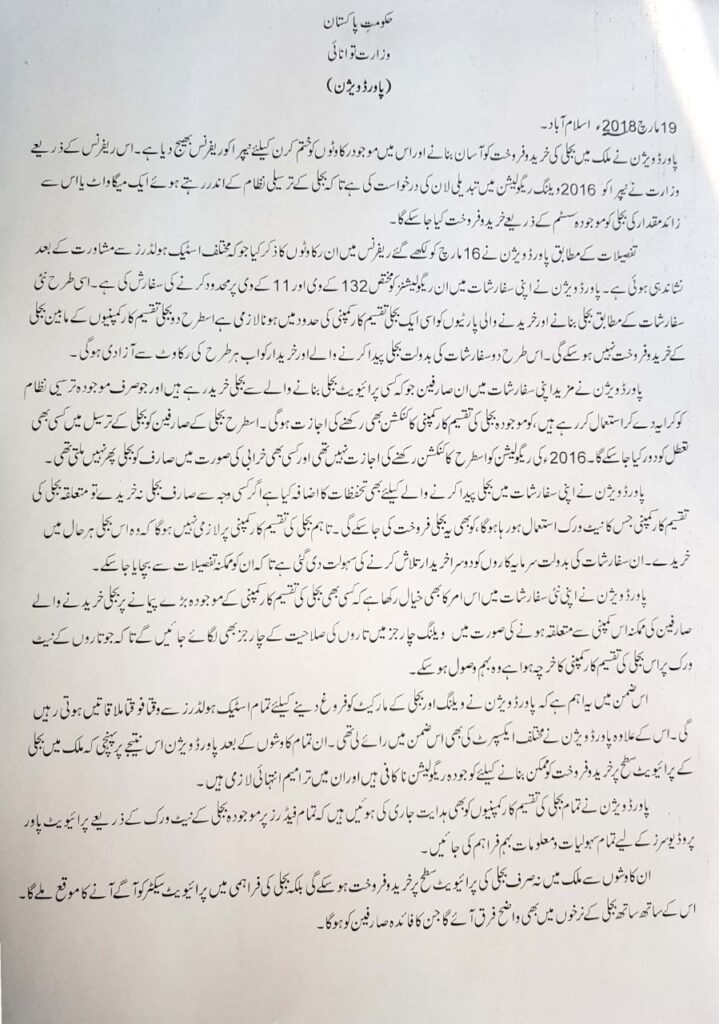 حکومتِ پاکستان
وزارت توانائی
(پاور ڈویژن)
19 مارچ 2018ء اسلام آباد۔
پاور ڈویژن نے ملک میں بجلی کی خرید و فروخت کو آسان بنانے اور اس میں موجود رکاوٹوں کو ختم کرن کیلئے نیپرا کو ریفرنس بھیج دیا ہے۔ اس ریفرنس کے ذریعے
وزارت نے نیپرا کو 2016 ویلنگ ریگولیشن میں تبدیلی لان کی درخواست کی ہے تاکہ بجلی کے ترسیلی نظام کے اندر رہتے ہوئے ایک میگاواٹ یا اس سے
زائد مقدار کی بجلی کو موجودہ سسٹم کے ذریعے خرید و فروخت کیا جا سکے گا۔
تفصیلات کے مطابق پاور ڈویژن نے 16 مارچ کو لکھے گئے ریفرنس میں ان رکاوٹوں کا ذکر کیا جو کہ مختلف اسٹیک ہولڈرز سے مشاورت کے بعد
نشاندہی ہوئی ہے۔ پاور ڈویژن نے اپنی سفارشات میں ان ریگولیشنز کو مختص 132 کے وی اور 11 کے وی پر محدود کرنے کی سفارش کی ہے۔ اسی طرح نئی
سفارشات کے مطابق بجلی بنانے اور خریدنے والی پارٹیوں کو اسی ایک بجلی تقسیم کار کمپنی کی حدود میں ہونا لازمی ہے اسطرح دو بجلی تقسیم کار کمپنیوں کے مابین بجلی
کے خرید و فروخت نہیں ہو سکے گی۔ اس طرح دو سفارشات کی بدولت بجلی پیدا کرنے والے اور خریدار کو اب ہر طرح کی رکاوٹ سے آزادی ہوگی۔
پاور ڈویژن نے مزید اپنی سفارشات میں ان صارفین جو کہ کسی پرائیویٹ بجلی بنانے والے سے بجلی خرید رہے ہیں اور جو صرف موجودہ ترسیی نظام
کو کرایہ دے کر استعمال کر رہے ہیں، کو موجودہ بجلی کی تقسیم کار کمپنی کا کنکشن بھی رکھنے کی اجازت ہوگی۔ اسطرح بجلی کے صارفین کو بجلی کے ترسیل میں کسی بھی
تعطل کو دور کیا جا سکے گا۔ 2016ء کی ریگولیشن کو اسطرح کا کنکشن رکھنے کی اجازت نہیں تھی اور کسی بھی خرابی کی صورت میں صارف کو بجلی پھر نہیں ملتی تھی۔
پاور ڈویژن نے اپنی سفارشات میں بجلی پیدا کرنے والے کیلئے بھی تحفظات کا اضافہ کیا ہے اگر کسی وجہ سے صارف بجلی نہ خریدے تو متعلقہ بجلی کی
تقسیم کار کمپنی جس کا نیٹ ورک استعمال ہو رہا ہوگا، کو بھی یہ بجلی فروخت کی جا سکے گی۔ تاہم بجلی کی تقسیم کار کمپنی پر لازمی نہیں ہوگا کہ وہ اس بجلی ہر حال میں
خریدے۔ ان سفارشات کی بدولت سرمایہ کاروں کو دوسرا خریدار تلاش کرنے کی سہولت دی گئی ہے تاکہ ان کو ممکنہ تفصیلات سے بچایا جا سکے۔
پاور ڈویژن نے اپنی نئی سفارشات میں اس امر کا بھی خیال رکھا ہے کہ کسی بھی بجلی کی تقسیم کار کمپنی کے موجودہ بڑے پیمانے پر بجلی خریدنے والے
صارفین کی ممکنہ اس کمپنی سے متعلقہ ہونے کی صورت میں ویلنگ چارجز میں تاروں کی صلاحیت کے چارجز بھی لگائے جائیں گے تاکہ جو تاروں کے نیٹ
ورک پر اس بجلی کی تقسیم کار کمپنی کا خرچہ ہوا ہے وہ بہم وصول ہو سکے۔
اس ضمن میں یہ اہم ہے کہ پاور ڈویژن نے ویلنگ اور بجلی کے مارکیٹ کو فروغ دینے کیلئے تمام اسٹیک ہولڈرز سے وقتا فوقتا ملاقاتیں ہوتی رہیں
گی۔ اس کے علاوہ پاور ڈویژن نے مختلف ایکسپرٹ کی بھی اس ضمن میں رائے لی تھی۔ ان تمام کاوشوں کے بعد پاور ڈویژن اس نتیجے پر پہنچی کہ ملک میں بجلی
کے پرائیویٹ سطح پر خرید و فروخت کو ممکن بنانے کیلئے کوجودہ ریگولیشن ناکافی ہیں اور ان میں ترامیم انتہائی لازمی ہیں۔
پاور ڈویژن نے تمام بجلی کی تقسیم کار کمپنیوں کو بھی ہدایت جاری کی ہوئیں ہیں کہ تمام فیڈرز پر موجودہ بجلی کے نیٹ ورک کے ذریعے پرائیویٹ پاور
پروڈیوسرز کے لیے تمام سہولیات و معلومات بہم فراہم کی جائیں۔
ان کاوشوں سے ملک میں نہ صرف بجلی کی پرائیویٹ سطح پر خرید و فروخت ہو سکے گی بلکہ بجلی کی فراہمی میں پرائیویٹ سیکٹر کو آگے آنے کا موقع ملے گا۔
اس کے ساتھ ساتھ بجلی کے نرخوں میں بھی واضح فرق آئے گا جن کا فائدہ صارفین کو ہوگا۔